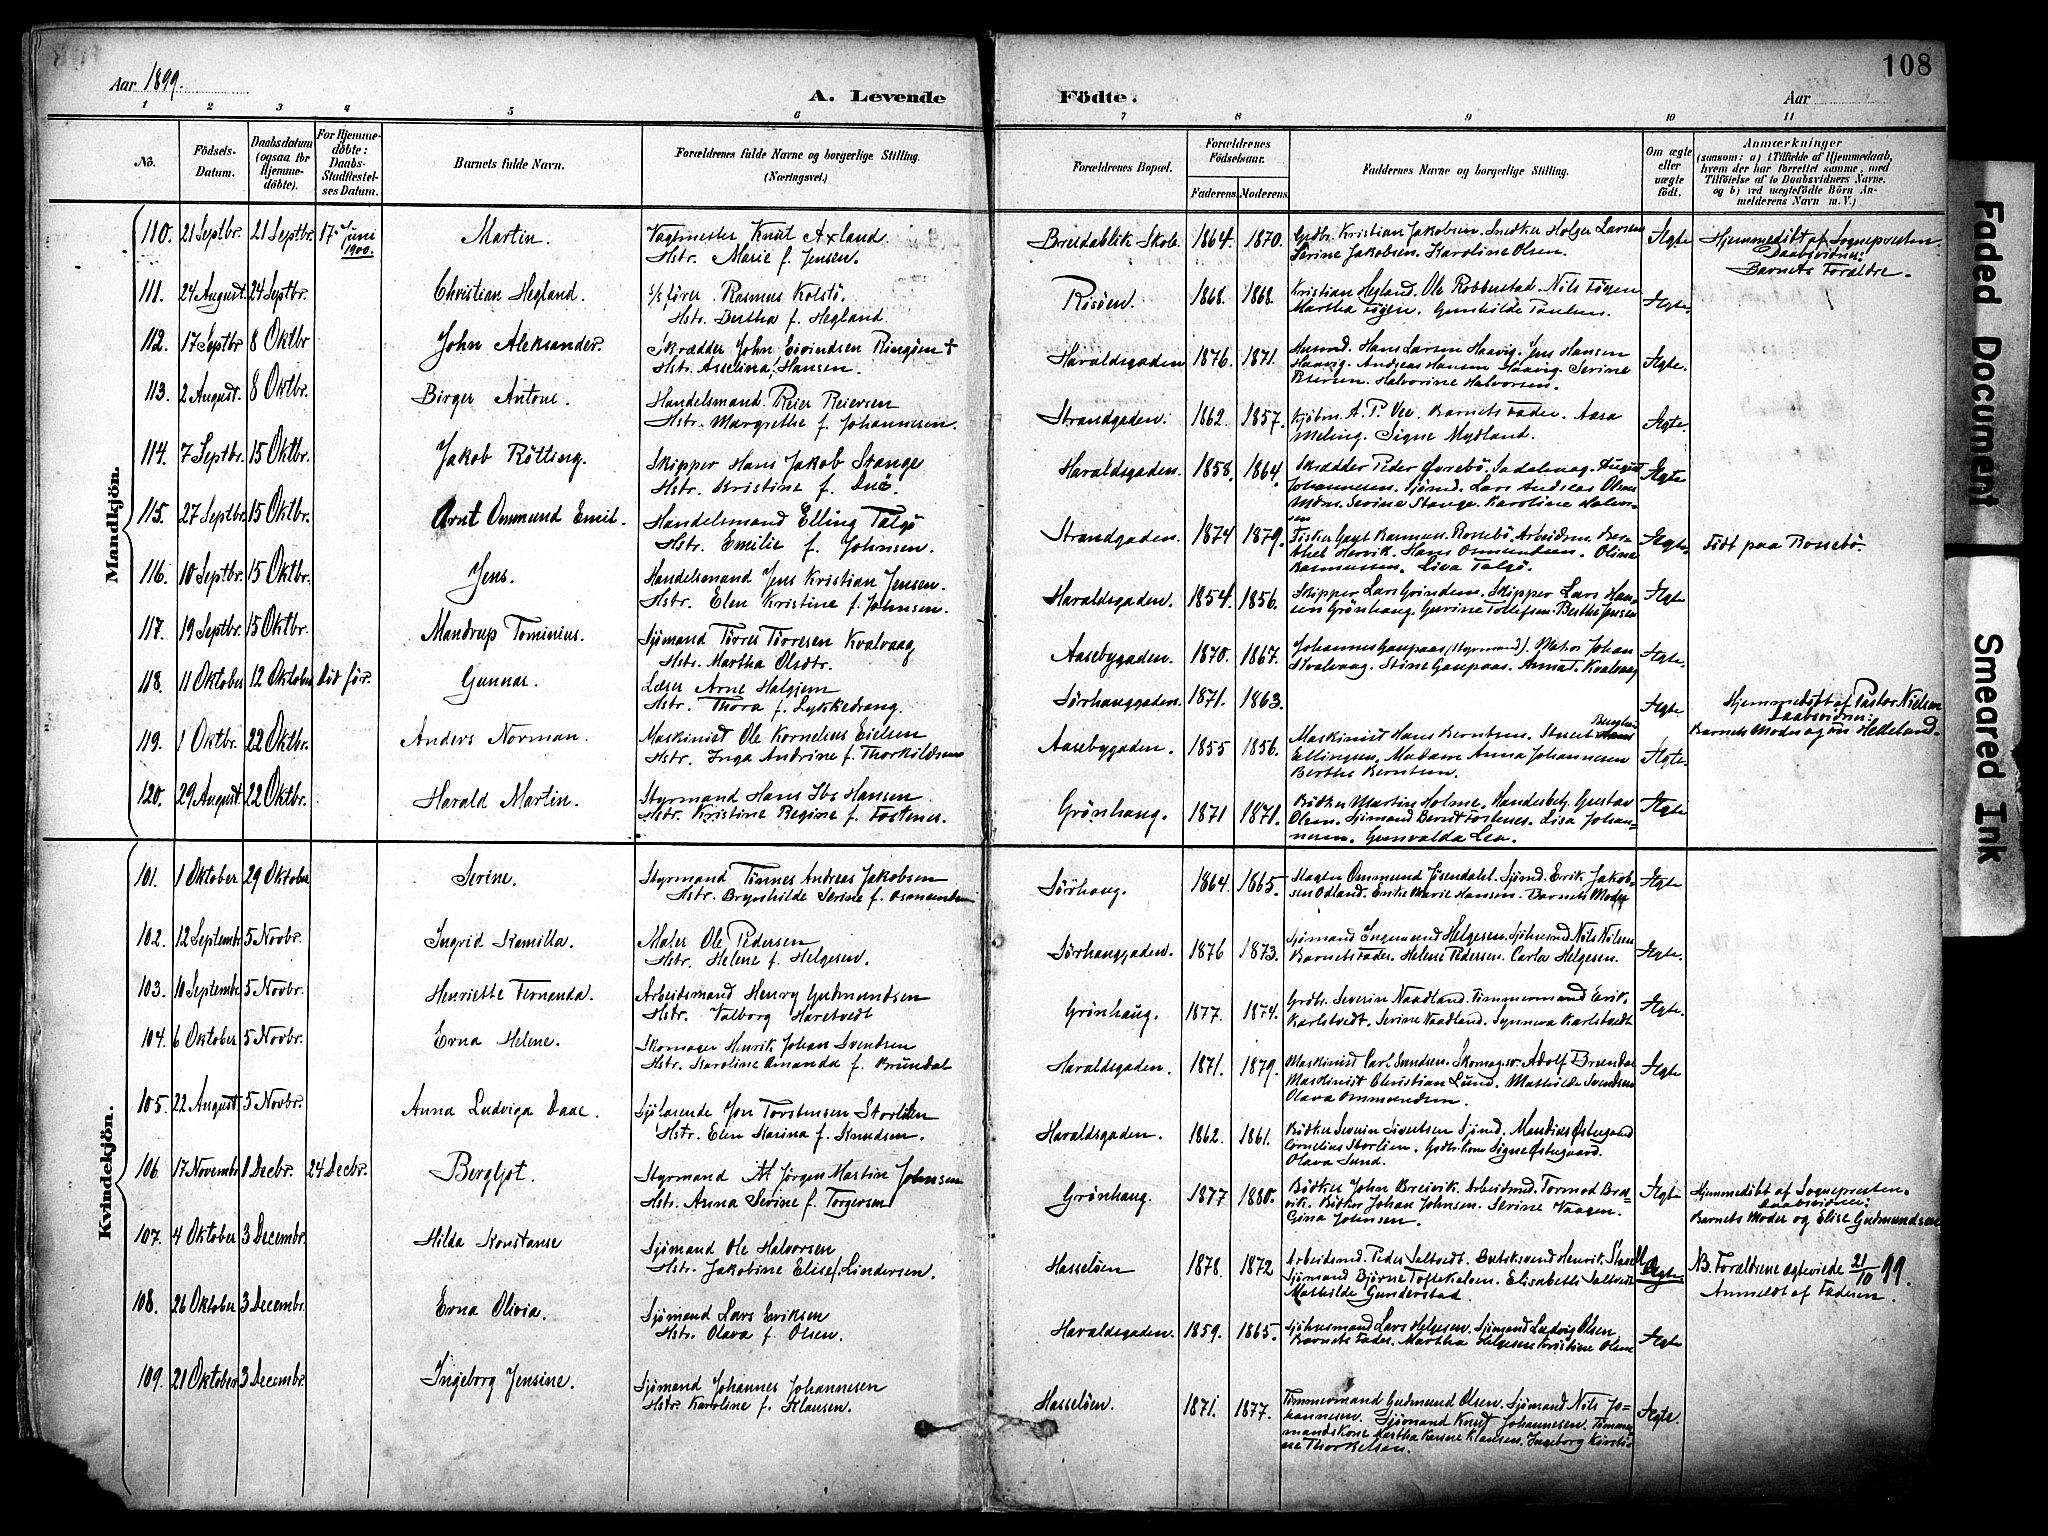 108
Aar 1899.
A. Levende Födte.
Aar
1 2 3 4 5 6 7 8 9 10 11
No.
Födsels-Datum.
Daabsdatum (ogsaa for Hjemme-döbte).
For Hjemme-döbte: Daabs-Stadfæstel-ses Datum.
Barnets fulde Navn.
Forældrenes fulde Navne og borgerlige Stilling. (Næringsvei.)
Forældrenes Bopæl.
Forældrenes Födselsaar.
Faderens. Moderens.
Faddernes Navne og borgerlige Stilling.
Om ægte eller uægte født.
Anmærkninger
(saasom: a) i Tilfælde af Hjemmedaab, hvem der har forrettet samme, med Tilföielse af to Daabsvidners Navne, og b) ved uægtefödte Börn An-melderens Navn m. V.)
Mandkjön.
110. 21 Septbr. 21 Septbr. 17 Juni 1900. Martin.
Vagtmester Knut Axland.
Hstr. Marie f. Jensen.
Breidablik Skole. 1864. 1870.
Grdbr. Kristian Jakobsen. Snedker Holger Larsen
Serine Jakobsen. Karoline Olsen.
Ægte
Hjemmedöbt af Sognepresten.
Daabsvidner:
Barnets Forældre.
111. 24 August. 24 Septbr. Christian Hegland.
s/s förer. Rasmus Kolstö.
Hstr. Bertha f. Hegland.
Risöen. 1868. 1868.
Kristian Hegland. Ole Robberstad. Nils Fögen
Martha Fögen. Gunhilde Paulsen.
Ægte.
112. 17 Septbr 8 Oktbr John Aleksander.
Skrædder John Eivindsen Ringöen +
Hstr. Asselina Hansen.
Haraldsgaden 1876. 1871.
Husmd. Hans Larsen Haavig. Jens Hansen
Haavig. Andreas Hansen Haavig. Serine
Petersen. Halvorine Halvorsen.
Ægte.
113. 2 August. 8 Oktbr. Birger Antone.
Handelsmand. Reier Reiersen
Hstr. Margrethe f. Johannesen.
Strandgaden. 1862. 1857.
Kjöbm. A. P. Vee. Barnets Fader. Aasa
Meling. Signe Mydland.
Ægte.
114. 7 Septbr. 15 Oktbr. Jakob Rötting.
Skipper Hans Jakob Stange
Hstr. Kristine f. Duö.
Haraldsgaden. 1858. 1864.
Skrædder Peder Övrebö. August
Johannesen. Sjömd. Lars Andreas Olsen
Mdm. Serine Stange. Karoline Halvor-
sen
Ægte
115. 27 Septbr 15 Oktbr. Arnt Ommund Emil.
Handelsmand Elling Talgö
Hstr. Emilie f. Johnsen.
Strandgaden. 1874 1879.
Rasmussen. Liva Talgö.
Ægte.
Födt paa Rossebö.
116. 10 Septbr. 15 Oktbr. Jens.
Handelsmand Jens Kristian Jensen.
Hstr. Elen Kristine f. Johnsen.
Haraldsgaden. 1854. 1856.
Skipper Lars Grindem. Skipper Lars Han-
sen Grönhaug. Gurine Tollefsen. Bertha Jensen
Ægte
117. 19 Septbr. 15 Oktbr. Mandrup Tominius.
Sjömand Törres Törresen Kvalvaag
Hstr. Martha Olsdtr.
Aasebygaden. 1870. 1867.
Johannes Gaupaas (Styrmand). Johan
Kvalvaag. Stine Gaupaas. Anna T. Kvalvaag
Ægte.
118. 11 Oktober 12 Oktober Död förr. Gunnar.
Læser Arne Helgjem
Hstr. Thora f. Lykkedrang.
Sörhauggaden. 1871. 1863.
Ægte
Hjemmedöbt af Pastor Nielsen
Daabsvidner:
Barnets Moder og Jon Helleland.
119. 1 Oktbr. 22 Oktbr. Anders Norman.
Maskinist Ole Kornelius Eielsen
Hstr. Inga Andrine f. Thorkildsen
Aasebygaden. 1855 1856.
Maskinist Hans Berntsen.
Ellingsen. Madam Anna Johannesen
Berthe Berntsen.
Ægte.
120. 29 August. 22 Oktbr. Harald Martin.
Styrmand Hans Ibs Hansen
Hstr. Kristine Regine f. Fostenes.
Grönhaug. 1871 1871.
Bödker Martin Holme. Handelsbetj. Gustav
Olsen. Sjömand Bernt Fostenes. Lisa Johan-
nesen. Gunvalda Lea.
Ægte
Kvindekjön.
101. 1 Oktober 29 Oktober Serine.
Styrmand Tönnes Andreas Jakobsen
Hstr. Brynhilde Serine f. Osmundsen
Sörhaug. 1864. 1865.
Slagter Ommund Jösendalet. Sjömd. Erik Jakob-
sen Odland. Enke Marie Hansen. Barnets Moder
Ægte
102. 12 Septembr 5 Novbr. Ingrid Kamilla.
Maler Ole Pedersen
Hstr. Helene f. Helgesen.
Sörhauggaden. 1876 1873.
Sjömand Ingemund Helgesen. Sjömand Nils Nilsen
Barnets Fader. Helene Pedersen. Carla Helgesen.
Ægte.
103. 10 Septembr 5 Novbr. Henriette Fernanda.
Arbeidsmand Henry Gudmundsen
Hstr. Valborg Haretvedt
Grönhaug. 1877. 1874.
Grdbr. Severin Naadland. Timmermand Erik
Karlstvedt. Serine Naadland. Synneva Karlstvedt
Ægte.
104. 6 Oktober 5 Novbr. Erna Helene.
Skomager Henrik Johan Svendsen
Hstr. Karoline Amanda f. Brundal
Haraldsgaden. 1871. 1879.
Maskinist Carl Sundsen. Skomagsv. Adolf Brundal
Maskinist Christian Lund. Mathilde Svendsen
Olava Ommundsen.
Ægte
105. 22 August 5 Novbr. Anna Ludviga Daae.
Sjöfarende Jon Torstensen Storlien
Hstr. Elen Karina f. Knudsen.
Haraldsgaden. 1862. 1861.
Bödker Severin Sivertsen Sjömd. Mandius Östegaard
Cornelius Storlien. Grdbr.kone Signe Östegaard.
Olava Sund.
106. 17 Novembr 1 Decbr. 24 Decbr. Bergljot.
Styrmand M. Jörgen Martin Johnsen
Hstr. Anna Serine f. Torgersen
Grönhaug. 1877 1880.
Bödker John Breivik. Arbeidsmd. Tormod Brei-
vik. Bödker Johan Johnsen. Serine Vaagen.
Gina Johnsen.
Ægte
Hjemmedöbt af Sognepresten.
Daabsvidner:
Barnets Moder og Elise Gudmundsen
107. 4 Oktober 3 Decembr. Hilda Konstanse
Sjömand Ole Halvorsen
Hstr. Jakobine Elise f. Lindersen.
Hasselöen 1878. 1872
Arbeidsmd. Peder Saltvedt. Butiksvend Henrik
Sjömand Björne Toftekalven. Elisabeth Saltvedt
Mathilde Gunderstad.
Ægte
NB. Forældrene ægteviede 21/10 99.
Anmeldt af Faderen.
108. 26 Oktober 3 Decembr. Erna Olivia.
Sjömand Lars Eriksen
Hstr. Olava f. Olsen.
Haraldsgaden. 1859. 1865.
Sjöhusmand Lars Helgesen. Sjömand Ludvig Olsen
Barnets Fader. Martha Helgesen Kristine Olsen
Ægte
109. 21 Oktober 3 Decembr. Ingeborg Jensine.
Sjömand Johannes Johannesen
Hstr. Karoline f. Klausen.
Hasselöen. 1871. 1877.
Timmermand Gudmund Olsen. Sjömand Nils Jo-
hannesen. Sjömand Knut Johannesen. Timmer-
mandskone Martha Karine Klausen. Ingeborg Kirsti-
ne Thorkelsen.
Ægte.
Faded Document
Smeared Ink